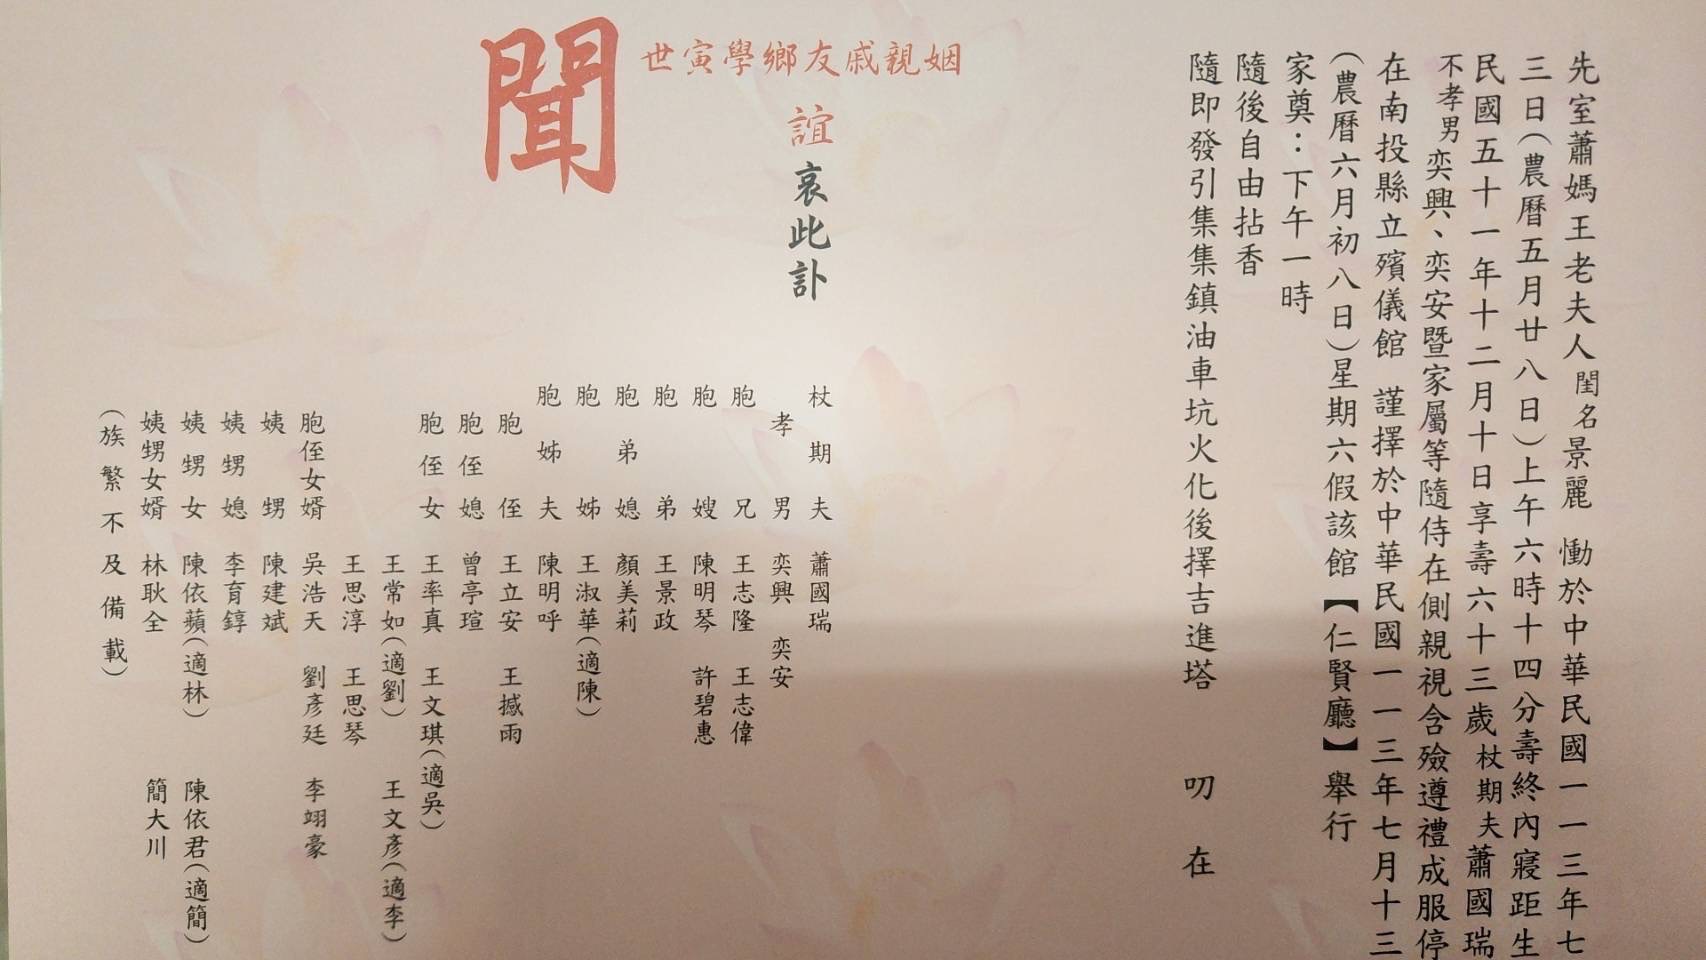 先室蕭媽王老夫人閨名景麗 慟於中華民國一一三年七
三日(農曆五月廿八日)上午六時十四分壽終內寢距生
民國五十一年十二月十日享壽六十三歲杖期夫蕭國瑞
不孝男奕興、奕安暨家屬等隨侍在側親視含殮遵禮成服停
在南投縣立殯儀館 謹擇於中華民國一一三年七月十三
(農曆六月初八日)星期六假該館【仁賢廳】舉行
家奠:下午一時
隨後自由拈香
隨即發引集集鎮油車坑火化後擇吉進塔 叨 在
姻親戚友鄉學寅世
誼哀此訃
聞
杖期夫 蕭國瑞
孝男 奕興 奕安
胞兄 王志隆 王志偉
胞嫂 陳明琴 許碧惠
胞弟 王景政
胞弟媳 顏美莉
胞姊 王淑華(適陳)
胞姊夫 陳明呼
胞侄 王立安 王撼雨
胞侄媳 曾亭瑄
胞侄女 王率真 王文琪(適吳)
王常如(適劉) 王文彥(適李)
王思淳 王思琴
胞侄女婿 吳浩天 劉彥廷 李翊豪
姨甥 陳建斌
姨甥媳 李育錞
姨甥女 陳依蘋(適林) 陳依君(適簡)
姨甥女婿 林耿全 簡大川
(族繁不及備載)